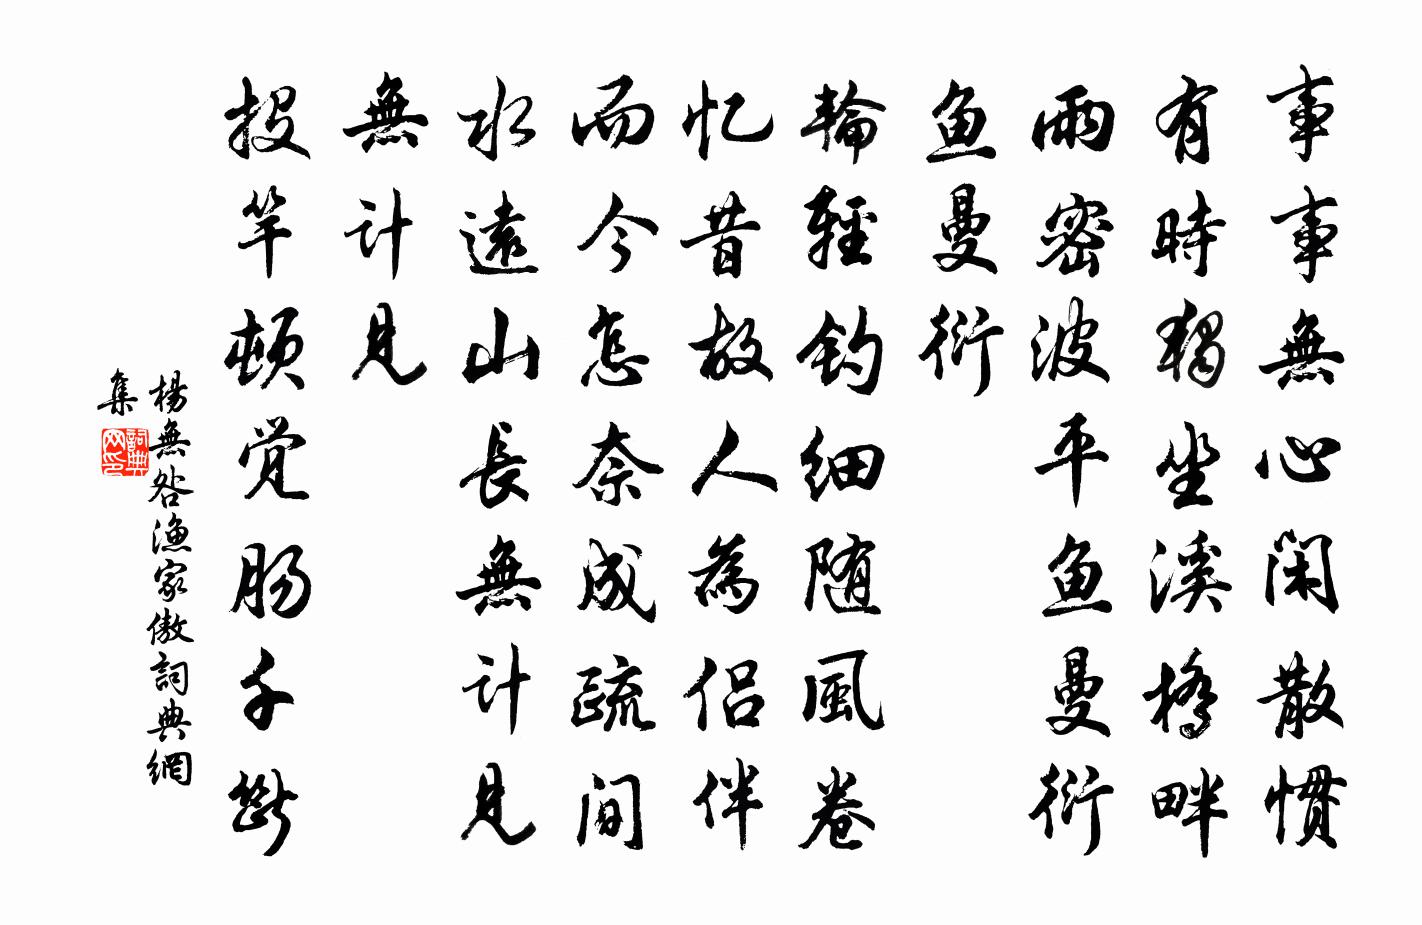 事事無心闲散慣
有時獨坐溪橋畔
雨密波平鱼曼衍
鱼曼衍
輪輕钓细随風卷
忆昔故人為侣伴
而今怎奈成疏间
水遠山長無计見
無计見
投竿顿觉肠千斷
楊無咎漁家傲詞典網
集
詞典
网印